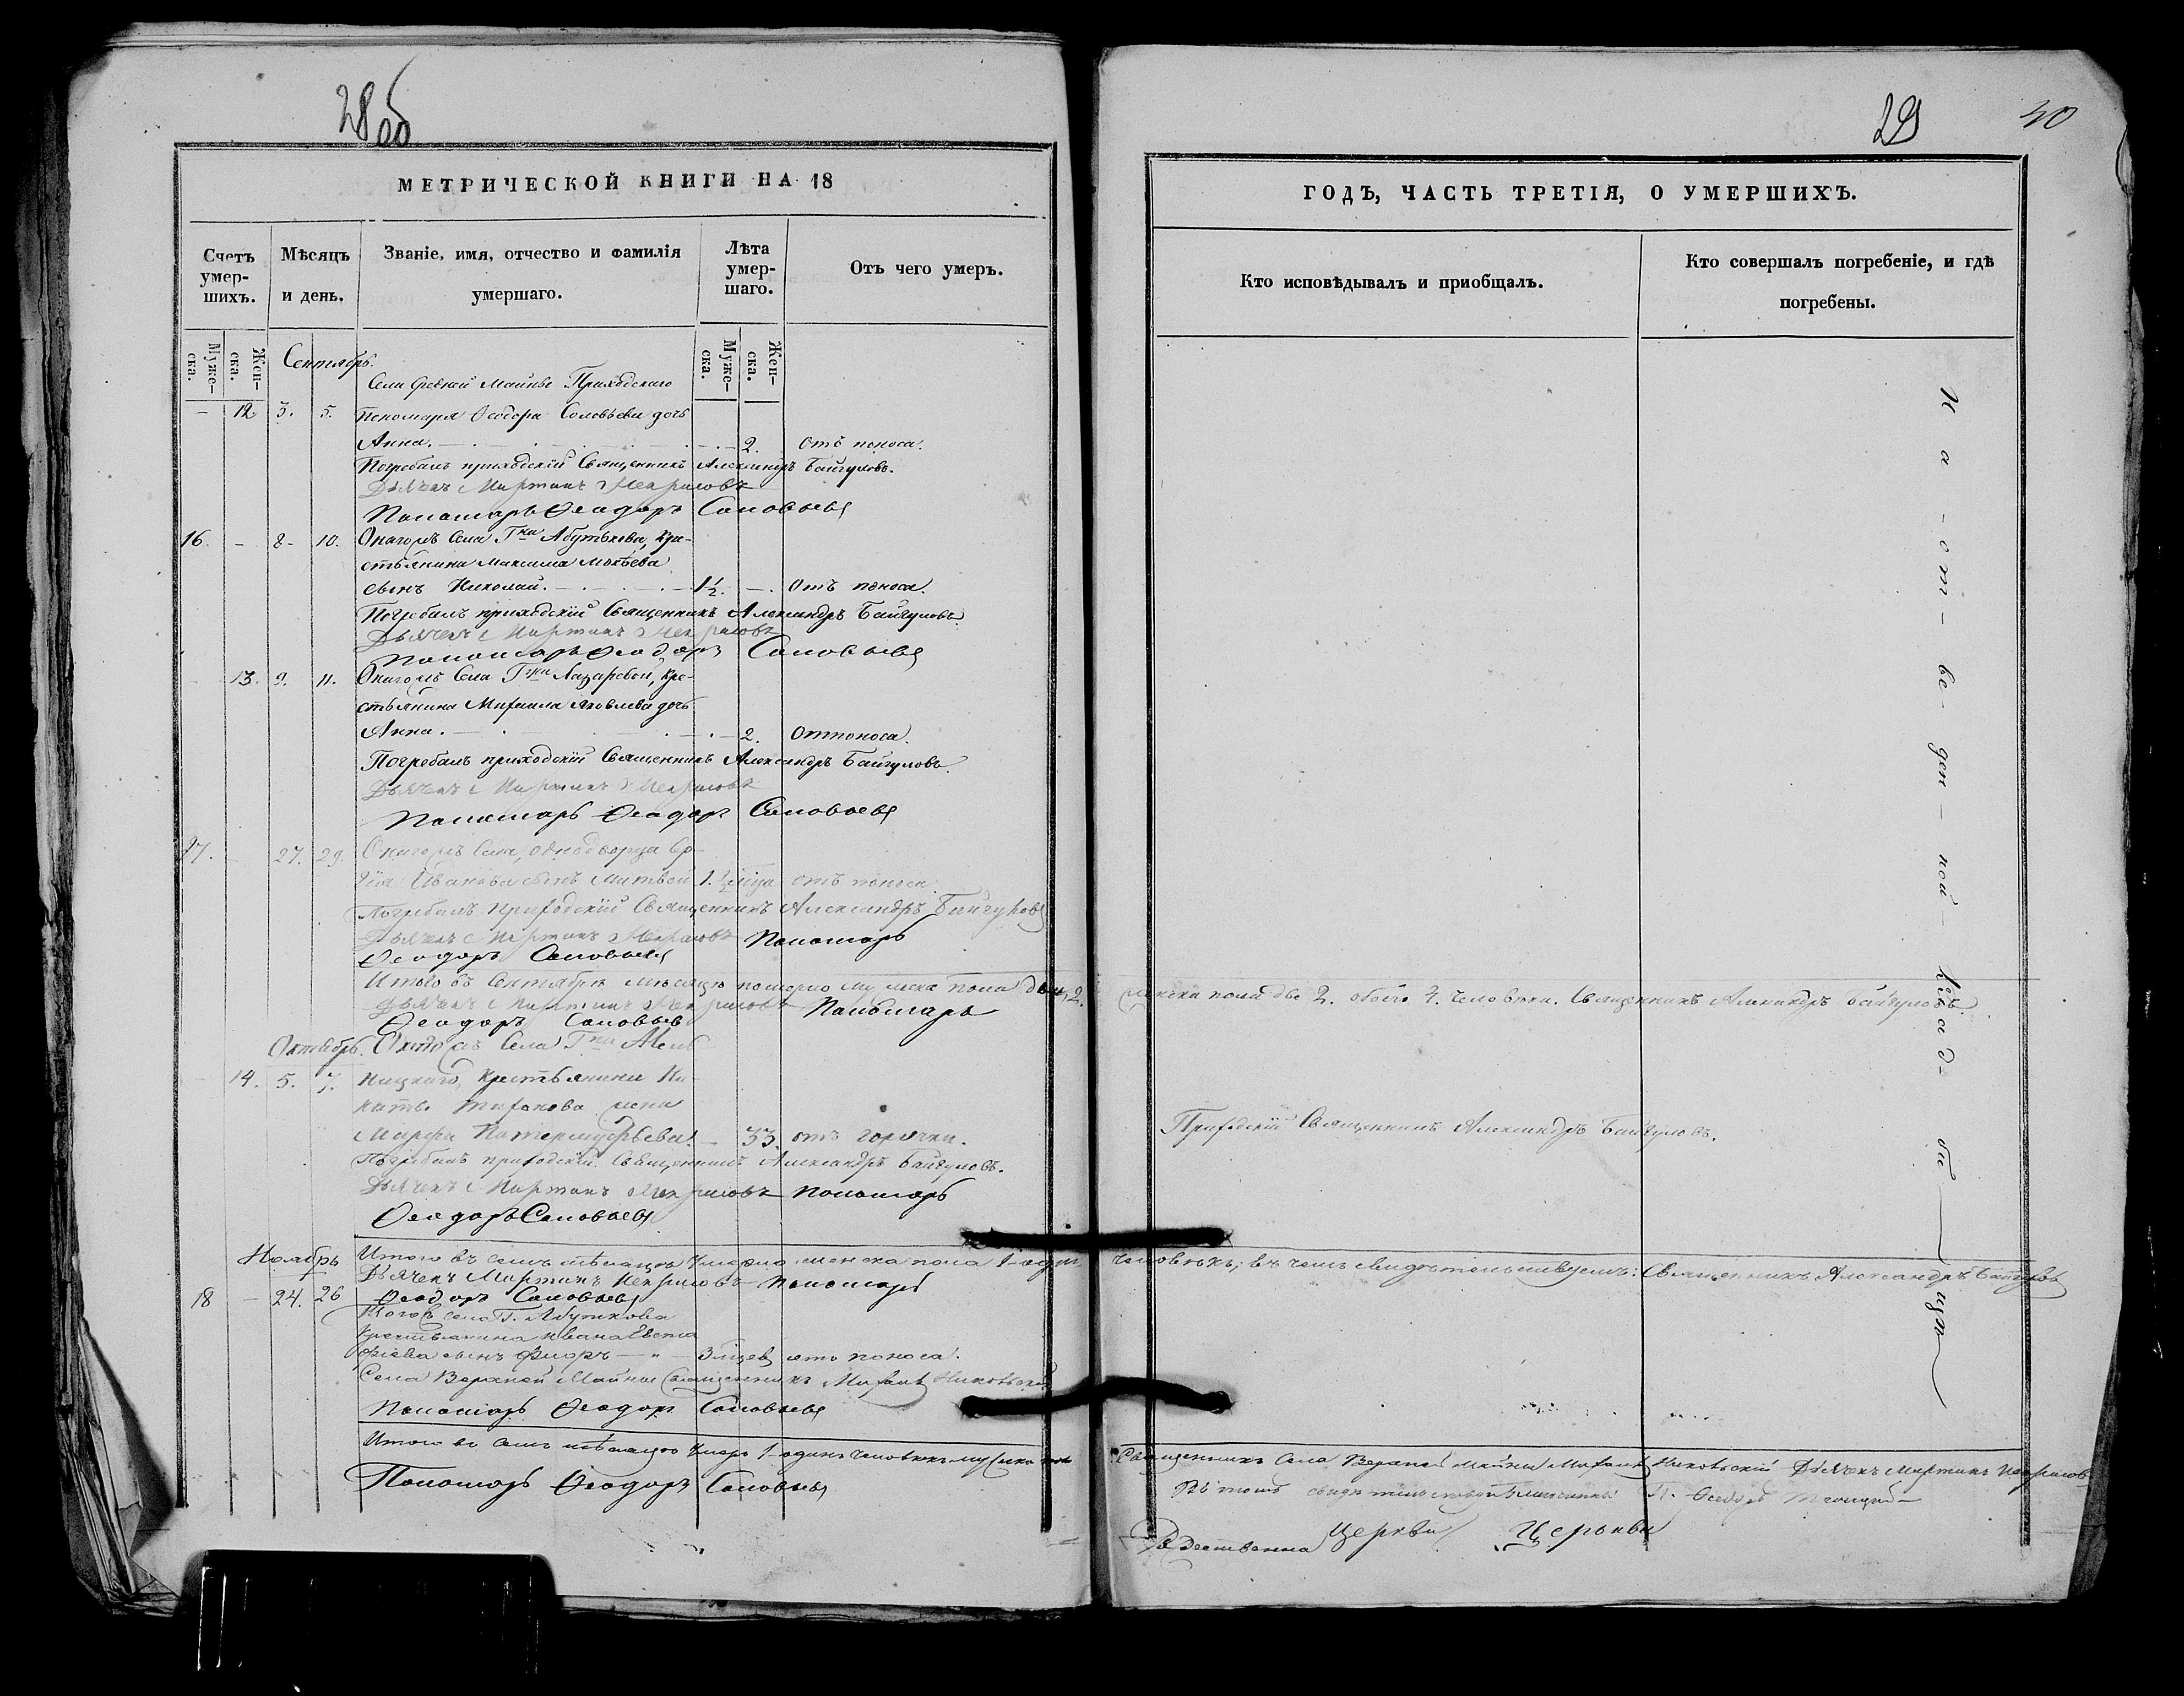 28 об
МЕТРИЧЕСКОЙ КНИГИ НА 18
Счетъ умер-шихъ.
Мѣсяцъ и день.
Званіе, имя, отчество и фамилія умершаго.
Лѣта умер-шаго.
Отъ чего умеръ.
Муже-ска.
Жен-ска.
Муже-ска.
Жен-ска.
Сентябрь.
Села Средней Майны Приходскаго
— 12 3. 5. Пономаря Ѳеодора Соловьева дочь
Анна. 2. отъ поноса.
Погребалъ приходскій Священникъ Александръ Байгуловъ.
Дьячекъ Мартинъ Некрасовъ
Пономарь Ѳеодоръ Соловьевъ
16. — 8. 10. Онагожъ Села Гжи Абутькова, кре-
стьянина Максима Мокѣева
сынъ Николай. 1½. — отъ поноса.
Погребалъ приходскій Священникъ Александръ Байгуловъ.
Дьячекъ Мартинъ Некрасовъ
Пономарь Ѳеодоръ Соловьевъ
13. 9. 11. Онагожъ Села Гжи Лазаревой, кре-
стьянина Михаила Яковлева дочь
Анна. 2. отпоноса.
Погребалъ приходскій Священникъ Александръ Байгуловъ.
Дьячекъ Мартинъ Некрасовъ
Пономарь Ѳеодоръ Соловьевъ
17. 27. 29. Онагожъ Села, однодворца
Иванова сынъ Матвей 1.½ года отъ поноса.
Погребалъ Приходскій Священникъ Александръ Байгуловъ
Дьячекъ Мартинъ Некрасовъ Пономарь
Ѳеодоръ Соловьевъ
Итого въ Сентябрѣ мѣсяцѣ померло мужеска пола два, 2.
Дьячекъ Мартинъ Некрасовъ Пономарь
Ѳеодоръ Соловьевъ
Октябрь. Села Гна
14. 5. 7. крестьянина
Тихонова жена
Марфа 33. отъ горячки.
Погребалъ приходскій Священникъ Александръ Байгуловъ.
Дьячекъ Мартинъ Некрасовъ пономарь
Ѳеодоръ Соловьевъ
Ноябрь Итого въ семъ мѣсяцѣ умерло женска пола 1
Дьячекъ Мартинъ Некрасовъ пономарь
18 — 24. 26 Ѳеодоръ Соловьевъ
Тогожъ села Г. Абуткова
крестьянина Ивана Евста
фіева сынъ Флоръ — 3 мцев отъ поноса.
Села Верхней Майны Священникъ Михаилъ
Пономарь Ѳеодоръ Соловьевъ
Итого въ семъ мѣсяцѣ умеръ 1 одинъ человѣкъ мужеска
Пономарь Ѳеодоръ Соловьевъ
29
40
ГОДЪ, ЧАСТЬ ТРЕТІЯ, О УМЕРШИХЪ.
Кто исповѣдывалъ и приобщалъ.
Кто совершалъ погребеніе, и гдѣ погребены.
На-от-ве-ден-ной-клад-би-щи
женска пола две 2. обоего 4. человѣка. Священникъ Александръ Байгуловъ.
Приходскій Священникъ Александръ Байгуловъ.
человѣкъ; въ чемъ свидѣтельствуемъ: Священникъ Александръ Байгуловъ
Священникъ Села Верхней Майны Михаилъ Дьячекъ Мартинъ Некрасовъ
Въ томъ
Церкви Церькви